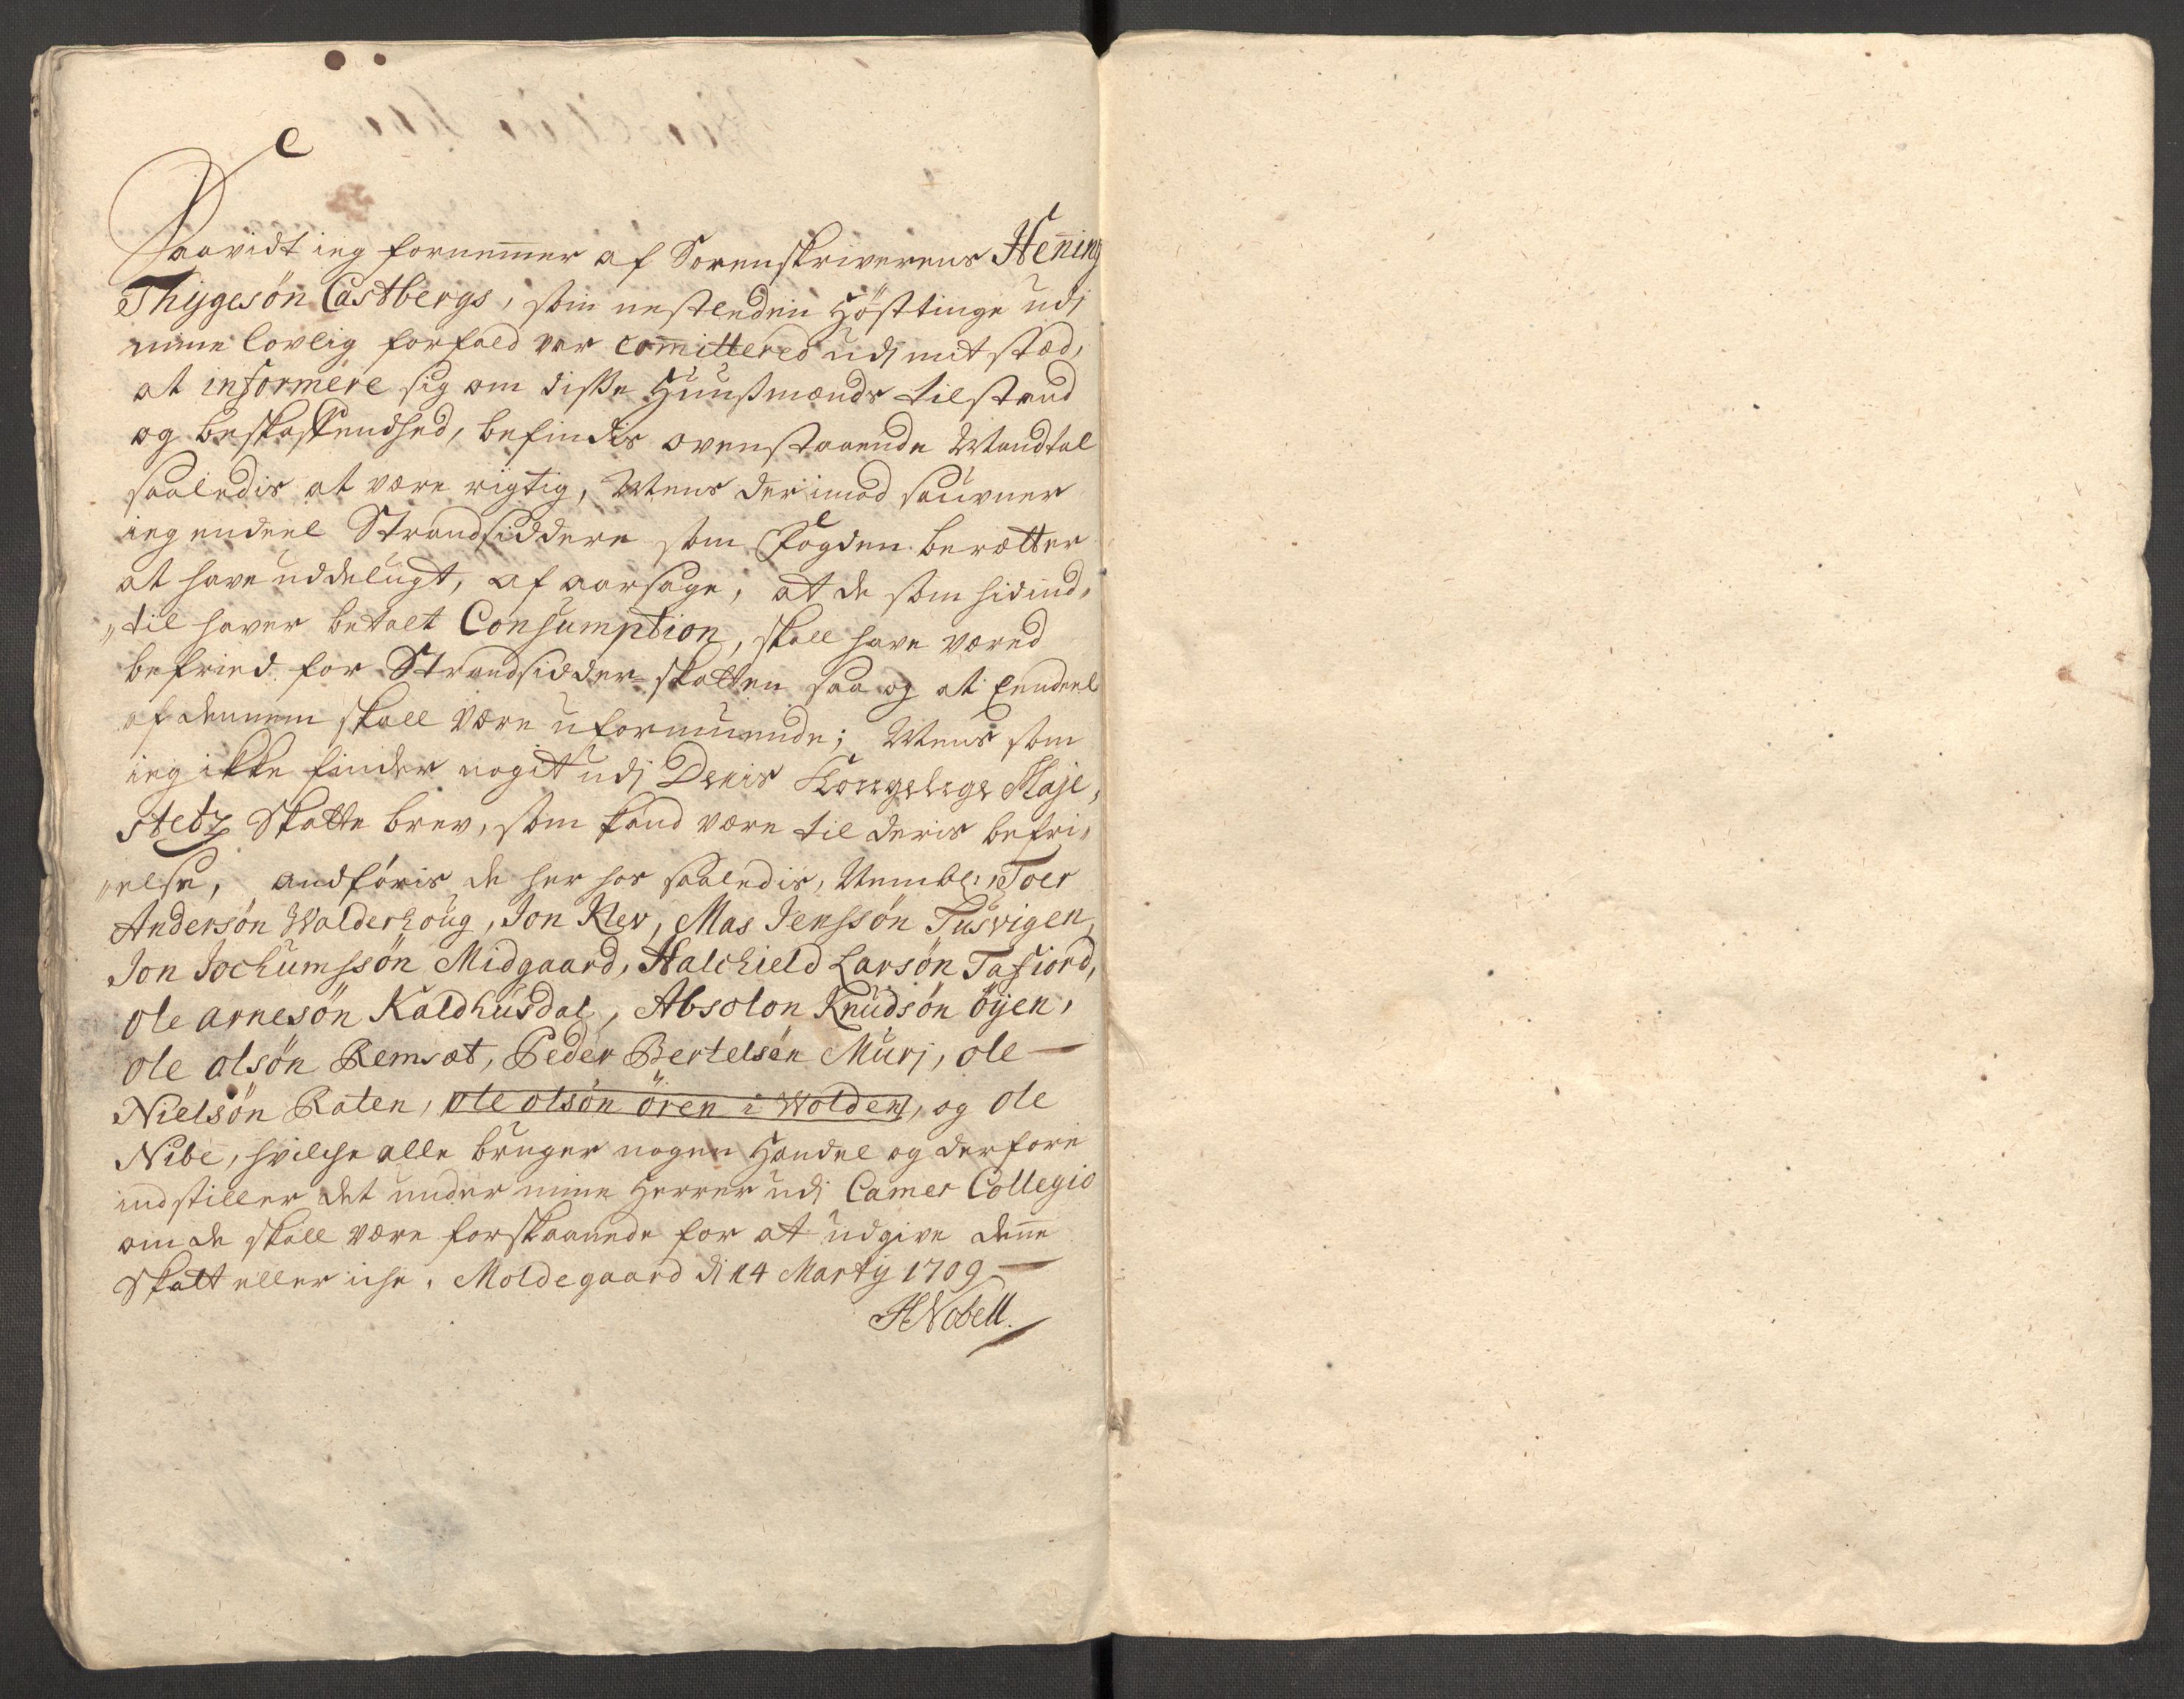 Saavidt ieg fornemmer af Sorenskriverens Hening
Thygesön Castbergs, som nestleden Hösttinge udj
mine lovlig forfald var committered udj mit stæd,
at informere sig om disse Huußmænds tilstand
og beskaffendhed, befindis ovenstaaende Mandtal
saaledis at være rigtig, Mens derimod saufner
ieg endeel Strandsiddere som Fogden beretter
at have uddelugt, af aarsage, at de som hidind,
„til haver betalt Consumption, skall have været
befried for Strandsidder-skatten saa og at Eendeel
af dennem skall være uformuende; Mens som
ieg ikke finder nogit udj Deris Kongelige Maje,
stetz Skatte brev, som kand være til deris befri„
„else, andföris de her hos saaledis, Nembl: Toer
Andersön Walderhoug, Jon Klev, Mas Jenssön Tusvigen,
Jon Jochumssön Midgaard, Halchield Larsön Tafiord,
Ole Arnesön Kaldhusdal, Absolon Knudsön Öyen,
Ole Olsön Remsæt, Peder Bertelsen Murj, Ole
Nielsön Raten, Ole Olsön Ören i Wolden, og Ole
Nibe, hvilche alle bruger nogen Handel og derfore
indstiller det under mine Herrer udj Camer Collegio
om de skall være forskaanede for at udgive denne
Skatt eller iche. Moldegaard d: 14 Martij 1709
HNobell.